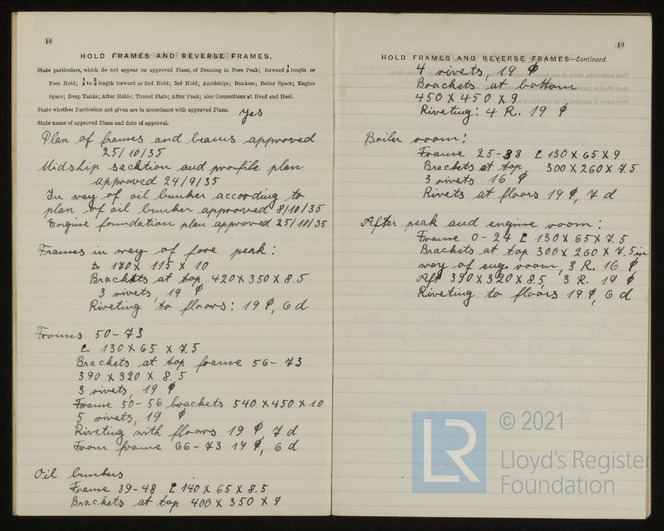 18
HOLD FRAMES AND REVERSE FRAMES.
State particulars, which do not appear on approved Plans, of Framing in Fore Peak; forward 1/5 length or
Fore Hold; length forward or 2nd Hold; 3rd Hold; Amidships; Bunkers; Boiler Space; Engine
Space; Deep Tanks; After Holds; Tunnel Flats; After Peak; also Connections at Head and Heel.
State whether Particulars not given are in accordance with approved Plans. yes
State name of approved Plans and date of approval.
Plan of frames and beams approved
25/10/35
Midship secktion and profile plan
approved 24/9/35
In way of oil bunker according to
plan of oil bunker approved 8/10/35
Engine foundation plan approved 25/10/35
Frames in way of fore peak:
170 x 115 x 10
Brackets at top 420 x 350 x 8.5
3 rivets 19 φ
Riveting to floors: 19 φ, 6 d
Frames 50-73
130 x 65 x 7.5
Brackets at top frame 56-73
390 x 320 x 8.5
3 rivets, 19 φ
Frame 50-56 brackets 540 x 450 x 10
5 rivets, 19 φ
Riveting with floors 19 φ 7 d
From frame 66-73 19 φ, 6 d
Oil bunkers
Frame 39-48 140 x 65 x 8.5
Brackets at top 400 x 350 x 9
19
HOLD FRAMES AND REVERSE FRAMES—Continued.
4 rivets, 19 φ
Brackets at bottom
450 x 450 x 9
Riveting: 4 R. 19 φ
Boiler room:
Frame 25-38 130 x 65 x 9
Brackets at top 300 x 260 x 7.5
3 rivets 16 φ
Rivets at floors 19 φ, 7 d
After peak and engine room:
Frame 0-24 130 x 65 x 7.5
Brackets at top 300 x 260 x 7.5 in
way of eng. room, 3 R. 16 φ
Aft 390 x 320 x 8.5, 3 R. 19 φ
Riveting to floors 19 φ, 6 d
LR
© 2021
Lloyd's Register
Foundation